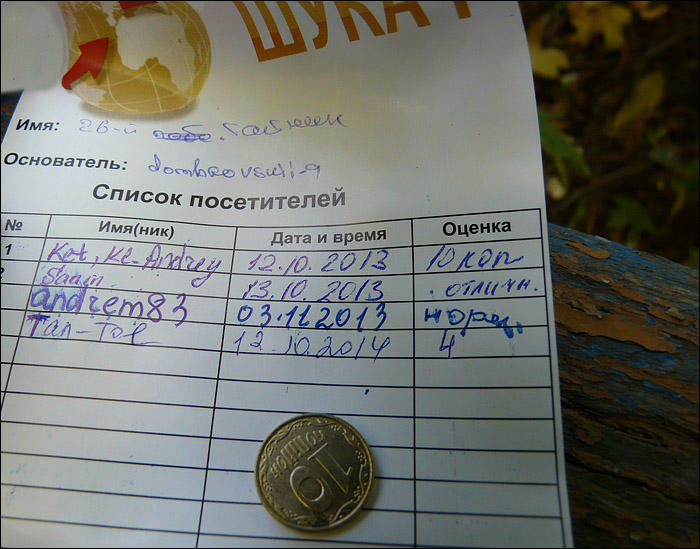 ШУКА
Имя: 26-й тайник
Основатель: dombrovskii-9
Список посетителей
№ Имя(ник) Дата и время Оценка
1 Kot, Kc-Andrey 12.10.2013 10 коп
2 13.10.2013 отличн.
andrem83 03.11.2013 норм.
Tan-Tol 12.10.2014 4
10
КОПІЙОК